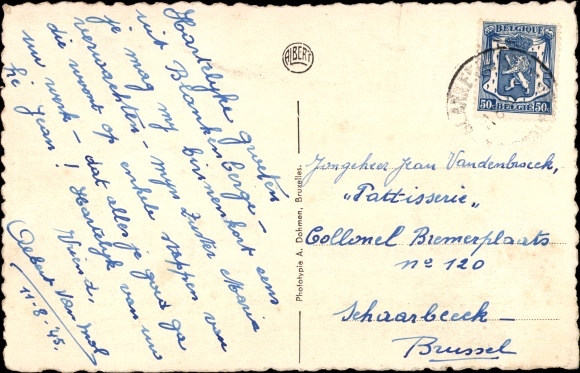 Hartelijke groeten
uit Blankenberge –
je mag mij binnenkort eens
verwachten – mijn Zuster Maria
die woont op enkele stappen van
uw werk – dat alles je goed ga
hé Jean! Hartelijk van uw
Vriend,
Albert Van
11.8.'45.
ALBERT
Phototypie A. Dohmen, Bruxelles.
BELGIQUE
50c 50c
BELGIË
Jongeheer Jean Vandenbroeck,
„Pattisserie"
Collonel Bremerplaats
no 120
Schaarbeeck –
Brussel